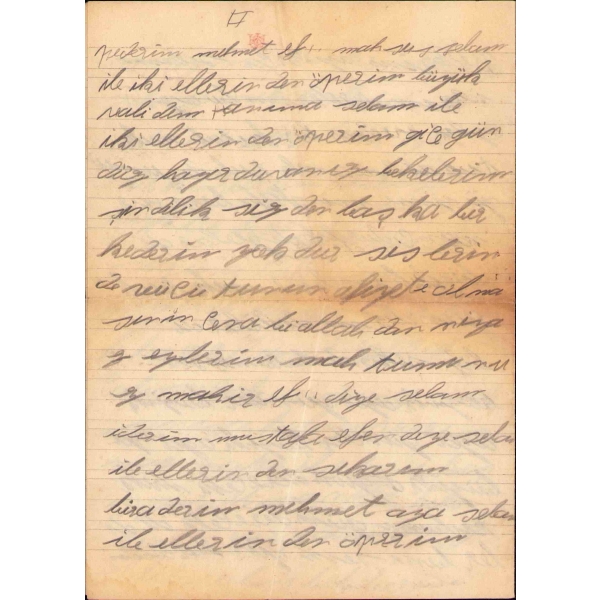 II
pederim mehmet ef.. mah sus selam
ile iki ellerin den öperim büyük
vali dem hanıma selam ile
iki ellerin den öperim gice gün
düz hayır duvanız bekelerim
şin dilik siz den başka bir
kederim yok dur sis lerin
de vücu tunun afiyet e olma
sını Cena bi allah dan niyaz
z eylerim mah tumu nu
z mahir ef.. diye selam
iderim mustafa efen diye selam
ile ellerin den sıkarım
bira derim mehmet aya selam
ile ellerin den öperim